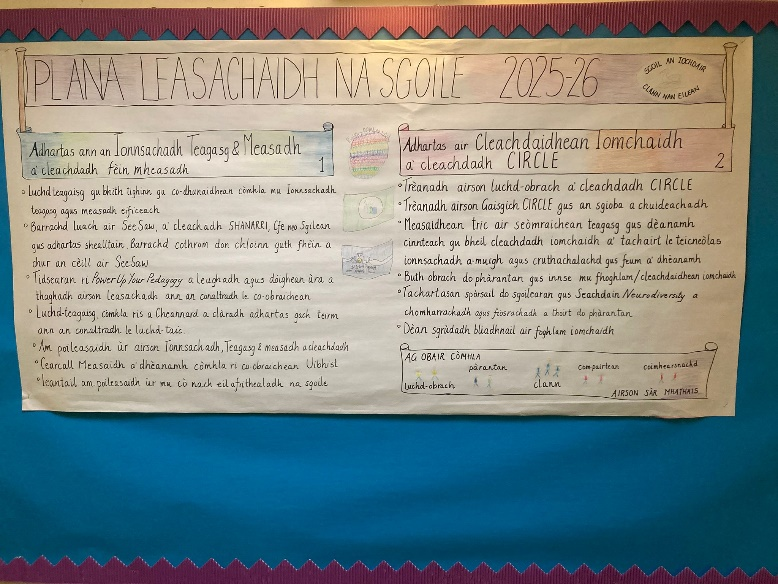 PLANA LEASACHAIDH NA SGOILE 2025-26
SGOIL AN IOCHDAIR
CLANN NAN EILEAN
Adhartas ann an Ionnsachadh Teagasg & Measadh
a' cleachdadh fèin mheasadh 1
Luchd teagaisg gu bhith tighinn gu co-dhùnaidhean còmhla mu Ionnsachadh
teagasg agus measadh èifeachd
Barrachd luach air SeeSaw, a' cleachadh SHANARRI, Cfe no Sgilean
gus adhartas shealltain, barrachd cothrom don chloinn guth fhèin a
chur an cèill air SeeSaw
Tidsearan ri Power Up Your Pedagogy a leughadh agus dòighean ùra a
thaghadh airson leasachadh ann an conaltradh le co-obraichean
Luchd-teagaisg còmhla ris a' Cheannard a clàradh adhartas gach teirm
ann an conaltradh le luchd-taic
Am poileasaidh ùr airson Ionnsachadh, Teagasg & measadh a cleachdadh
Cearcall Measaidh a' dhèanamh còmhla ri co-obraichean Uibhist
leantail am poileasaidh ùr mu cò nach eil a' fritheáladh na sgoile
Adhartas air Cleachdaidhean Iomchaidh
a' cleachdadh CIRCLE 2
Trèanadh airson luchd-obrach a' cleachdadh CIRCLE
Trèanadh airson Gaisgich CIRCLE gus an sgioba a chuideachadh
Measaidhean tric air seòmraichean teagasg gus dèanamh
cinnteach gu bheil cleachdadh iomchaidh a' tachairt le teicneòlas
ionnsachadh a-muigh agus cruthachalachd gus feum a' dhèanamh
Buth obrach do phàrantan gus innse mu fhoghlam/cleachdaidhean iomchaidh
Tachartasan spòrsail do sgoilearan gus Seachdain Neurodiversity a
chomharrachadh agus fiosrachadh a thoirt do phàrantan
Dèan sgrùdadh bliadhnail air foghlam iomchaidh
AG OBAIR CÒMHLA
luchd-obrach pàrantan clann compairtean coimhearsnachd
AIRSON SÀR MHATHAIS